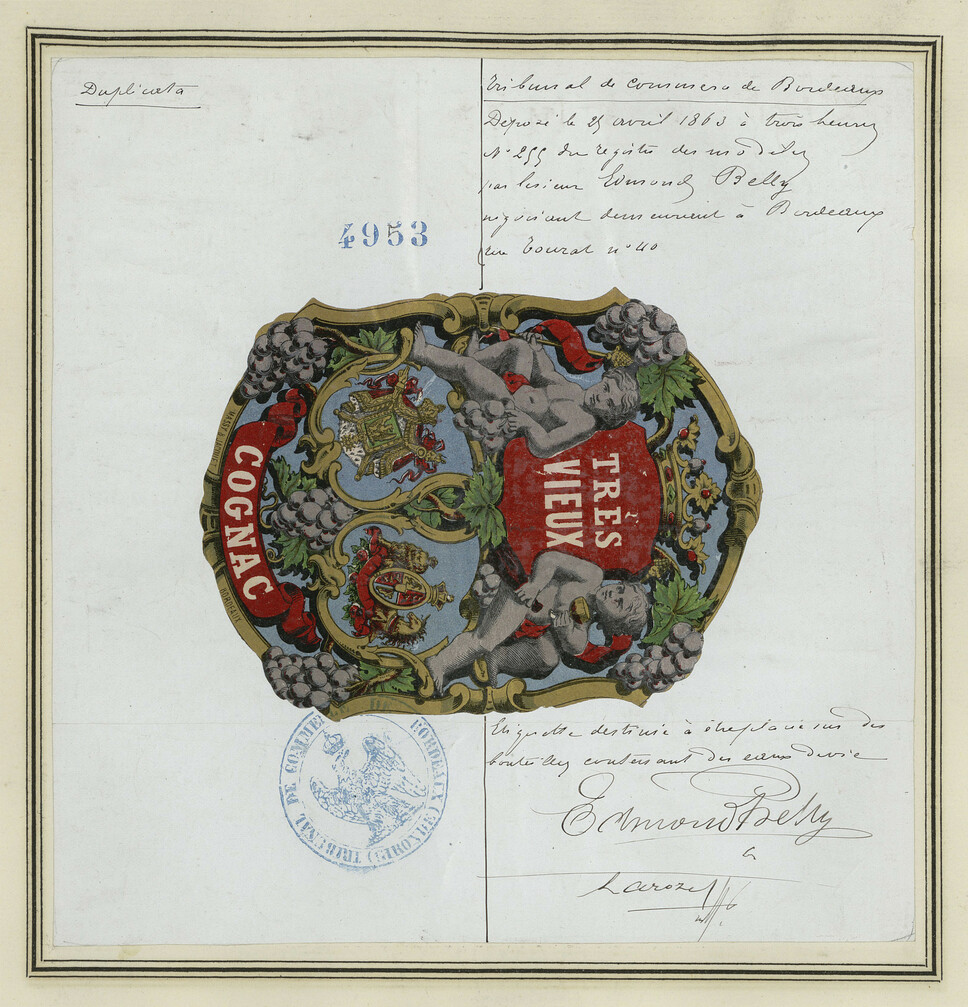 Duplicata
Tribunal de Commerce de Bordeaux
Déposé le 25 avril 1863 à trois heures
N° 255 du registre des modèles
par le sieur Edmond Belly
négociant demeurant à Bordeaux
rue n° 40
4953
TRÈS
VIEUX
COGNAC
BORDEAUX
Etiquette destinée à être placée sur des
bouteilles contenant des eaux de vie
Edmond Belly
TRIBUNAL DE COMMERCE DE BORDEAUX (GIRONDE)